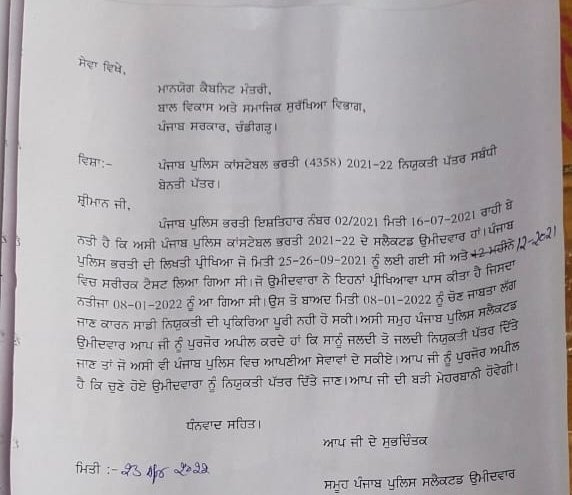 ਸੇਵਾ ਵਿਖੇ,
ਮਾਨਯੋਗ ਕੈਬਨਿਟ ਮੰਤਰੀ,
ਬਾਲ ਵਿਕਾਸ ਅਤੇ ਸਮਾਜਿਕ ਸੁਰੱਖਿਆ ਵਿਭਾਗ,
ਪੰਜਾਬ ਸਰਕਾਰ, ਚੰਡੀਗੜ੍ਹ।
ਵਿਸ਼ਾ:- ਪੰਜਾਬ ਪੁਲਿਸ ਕਾਂਸਟੇਬਲ ਭਰਤੀ (4358) 2021-22 ਨਿਯੁਕਤੀ ਪੱਤਰ ਸਬੰਧੀ
ਬੇਨਤੀ ਪੱਤਰ।
ਸ਼੍ਰੀਮਾਨ ਜੀ,
ਪੰਜਾਬ ਪੁਲਿਸ ਭਰਤੀ ਇਸ਼ਤਿਹਾਰ ਨੰਬਰ 02/2021 ਮਿਤੀ 16-07-2021 ਰਾਹੀ ਬੇ
ਨਤੀ ਹੈ ਕਿ ਅਸੀ ਪੰਜਾਬ ਪੁਲਿਸ ਕਾਂਸਟੇਬਲ ਭਰਤੀ 2021-22 ਦੇ ਸਲੈਕਟਡ ਉਮੀਦਵਾਰ ਹਾਂ।ਪੰਜਾਬ
ਪੁਲਿਸ ਭਰਤੀ ਦੀ ਲਿਖਤੀ ਪ੍ਰੀਖਿਆ ਜੋ ਮਿਤੀ 25-26-09-2021 ਨੂੰ ਲਈ ਗਈ ਸੀ ਅਤੇ 12 ਮਹੀਨੇ 12-2021
ਵਿਚ ਸਰੀਰਕ ਟੈਸਟ ਲਿਆ ਗਿਆ ਸੀ।ਜੋ ਉਮੀਦਵਾਰਾ ਨੇ ਇਹਨਾਂ ਪ੍ਰੀਖਿਆਵਾ ਪਾਸ ਕੀਤਾ ਹੈ ਜਿਸਦਾ
ਨਤੀਜਾ 08-01-2022 ਨੂੰ ਆ ਗਿਆ ਸੀ।ਉਸ ਤੋ ਬਾਅਦ ਮਿਤੀ 08-01-2022 ਨੂੰ ਚੋਣ ਜਾਬਤਾ ਲੱਗ
ਜਾਣ ਕਾਰਨ ਸਾਡੀ ਨਿਯੁਕਤੀ ਦੀ ਪ੍ਰਕਿਰਿਆ ਪੂਰੀ ਨਹੀ ਹੋ ਸਕੀ।ਅਸੀ ਸਮੂਹ ਪੰਜਾਬ ਪੁਲਿਸ ਸਲੈਕਟਡ
ਉਮੀਦਵਾਰ ਆਪ ਜੀ ਨੂੰ ਪੁਰਜੋਰ ਅਪੀਲ ਕਰਦੇ ਹਾਂ ਕਿ ਸਾਨੂੰ ਜਲਦੀ ਤੋ ਜਲਦੀ ਨਿਯੁਕਤੀ ਪੱਤਰ ਦਿੱਤੇ
ਜਾਣ ਤਾਂ ਜੋ ਅਸੀ ਵੀ ਪੰਜਾਬ ਪੁਲਿਸ ਵਿਚ ਆਪਣੀਆ ਸੇਵਾਵਾਂ ਦੇ ਸਕੀਏ।ਆਪ ਜੀ ਨੂੰ ਪੁਰਜੋਰ ਅਪੀਲ
ਹੈ ਕਿ ਚੁਣੇ ਹੋਏ ਉਮੀਦਵਾਰਾ ਨੂੰ ਨਿਯੁਕਤੀ ਪੱਤਰ ਦਿੱਤੇ ਜਾਣ।ਆਪ ਜੀ ਦੀ ਬੜੀ ਮੇਹਰਬਾਨੀ ਹੋਵੇਗੀ।
ਧੰਨਵਾਦ ਸਹਿਤ।
ਆਪ ਜੀ ਦੇ ਸੁਭਚਿੰਤਕ
ਮਿਤੀ :- 23 Apr 2022
ਸਮੂਹ ਪੰਜਾਬ ਪੁਲਿਸ ਸਲੈਕਟਡ ਉਮੀਦਵਾਰ